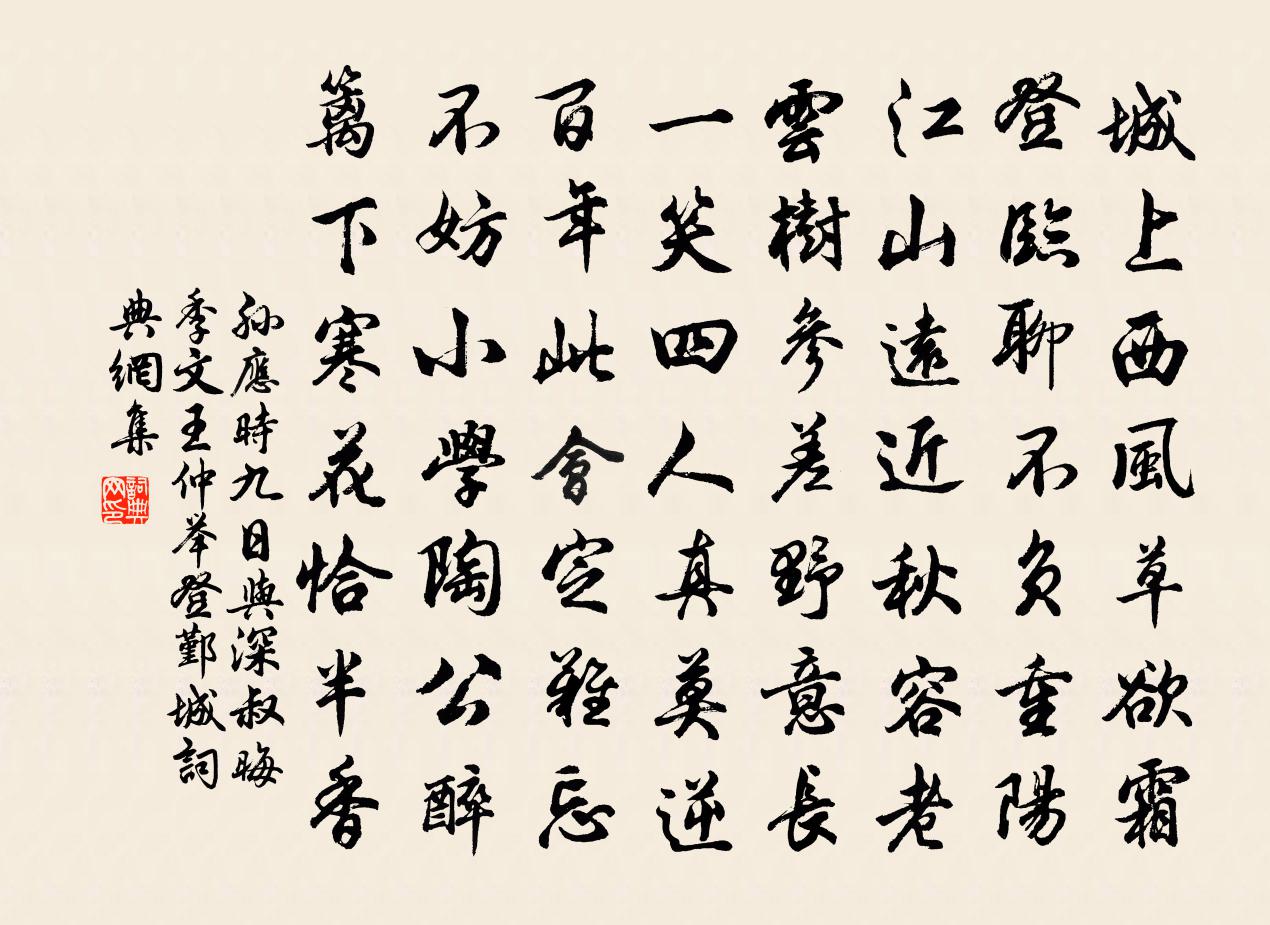 城上西風草欲霜
登臨聊不負重陽
江山遠近秋容老
雲樹參差野意長
一笑四人真莫逆
百年此會定難忘
不妨小學陶公醉
籬下寒花恰半香
孫應時九日與深叔晦
季文王仲举登鄞城詞
典網集
詞典
网印